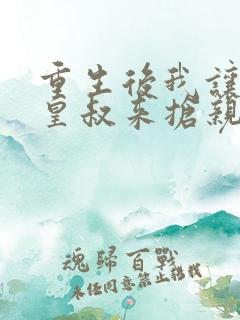 重生後我讓
皇叔来搶親
魂歸百戰
未任同意禁止轉載